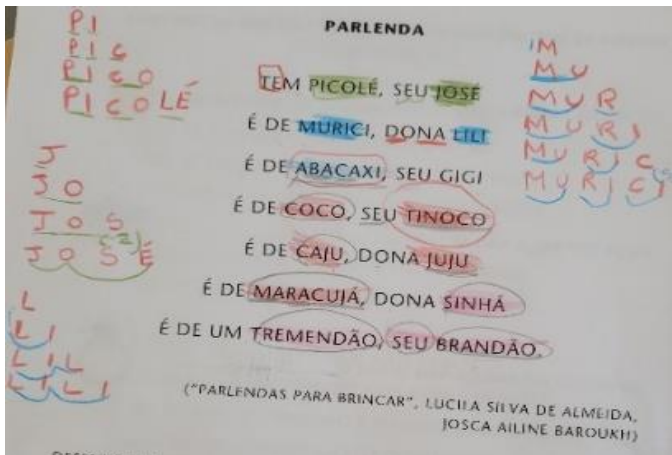 PARLENDA
TEM PICOLÉ, SEU JOSÉ
É DE MURICI, DONA LILI
É DE ABACAXI, SEU GIGI
É DE COCO, SEU TINOCO
É DE CAJU, DONA JUJU
É DE MARACUJÁ, DONA SINHÁ
É DE UM TREMENDÃO, SEU BRANDÃO.
("PARLENDAS PARA BRINCAR", LUCILA SILVA DE ALMEIDA,
JOSCA AILINE BAROUKH)
PI
PIC
PICO
PICOLÉ
J
JO
JOS
JOSÉ
L
LI
LIL
LILI
M
MU
MUR
MURI
MURIC
MURICI